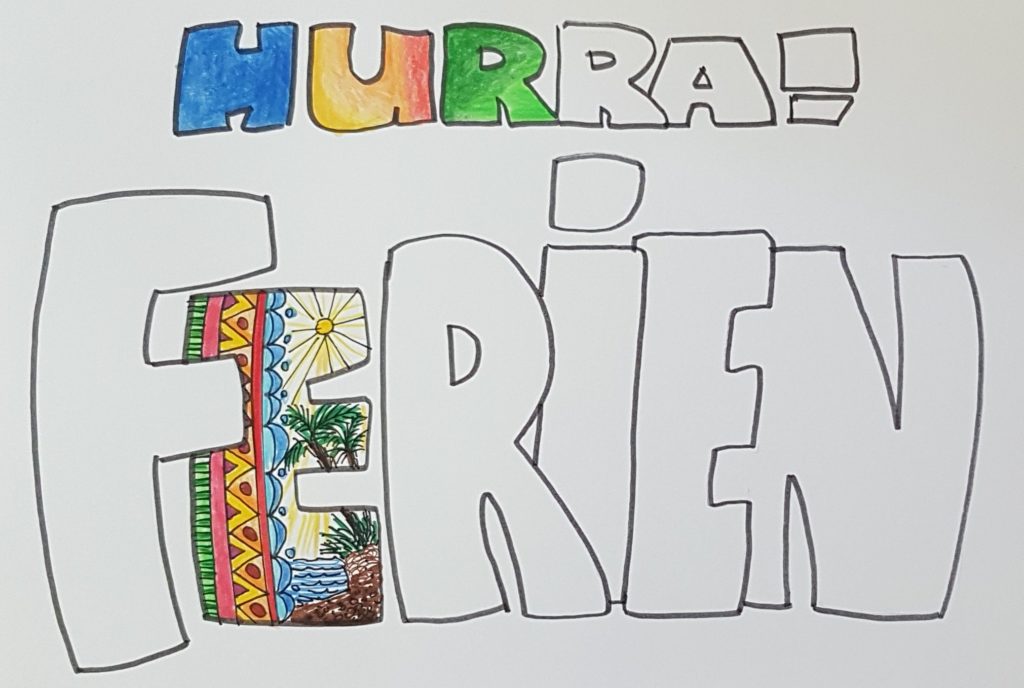 HURRA!
FERIEN